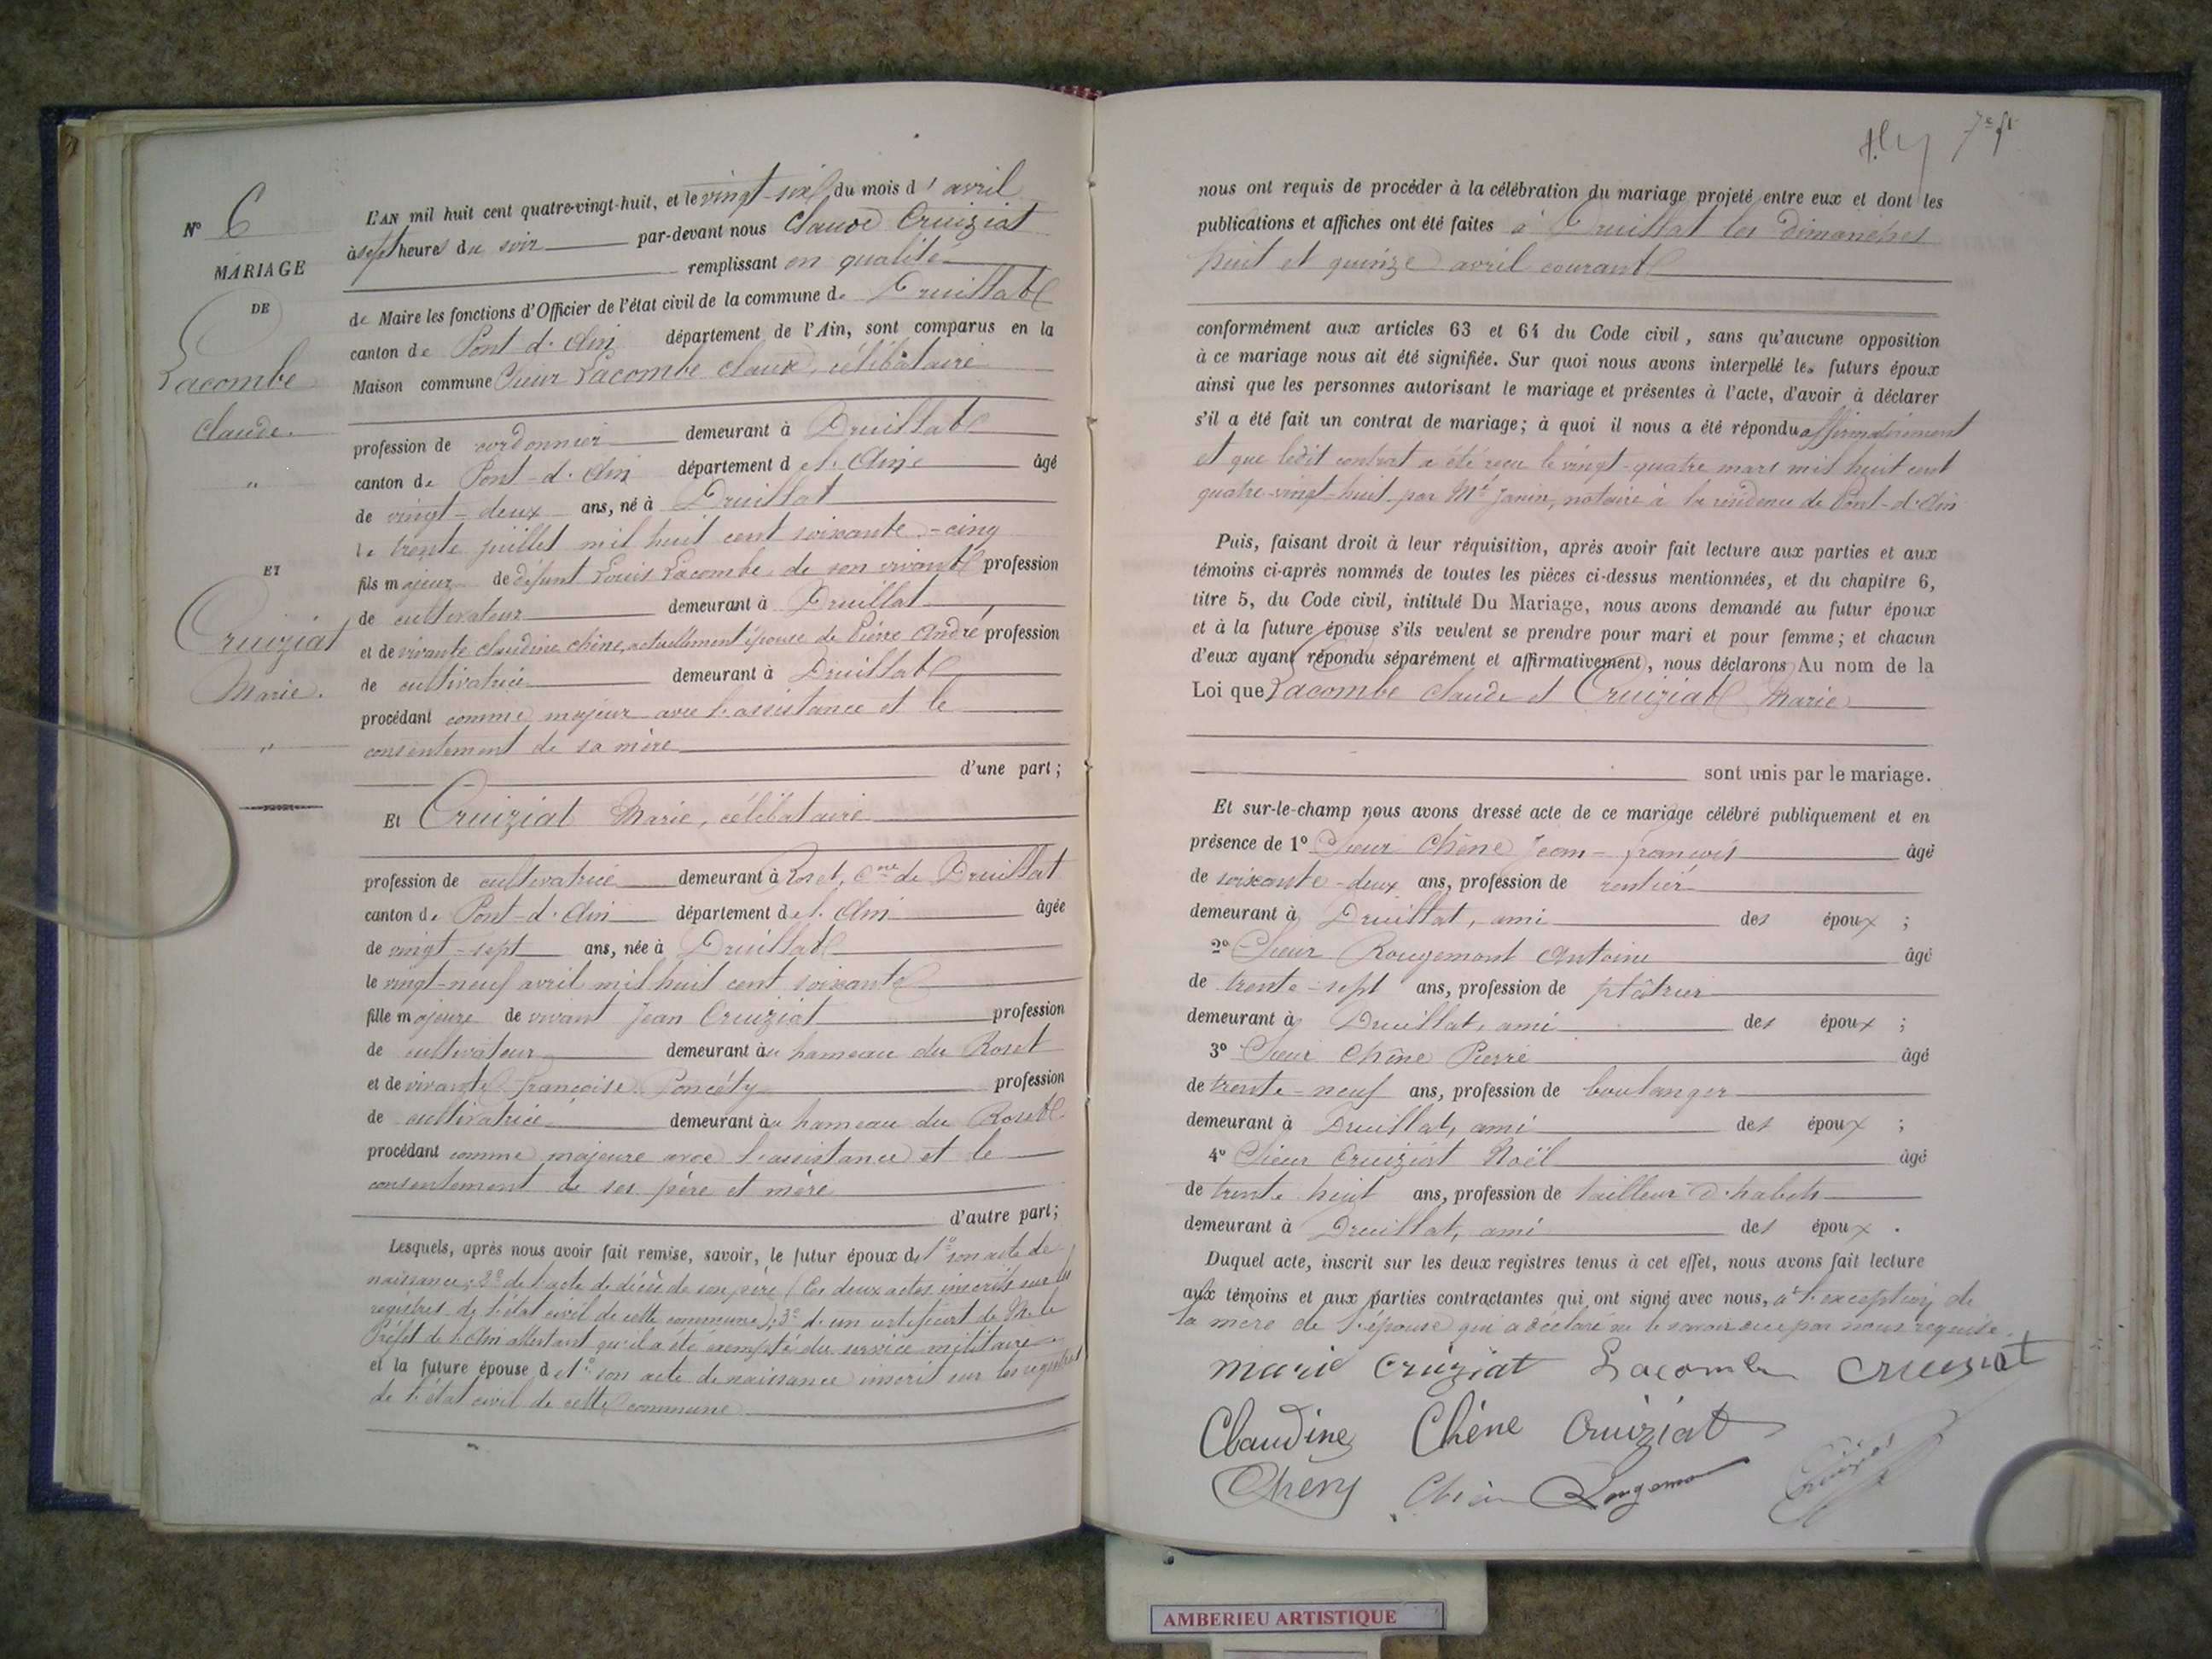 N° 6
MARIAGE
DE
Lacombe
Claude.
"
ET
Cruiziat
Marie.
"
L'AN mil huit cent quatre-vingt-huit, et le vingt-six du mois d'avril
à sept heures du soir par-devant nous Claude Cruiziat
remplissant en qualité
de Maire les fonctions d'Officier de l'état civil de la commune de Druillat
canton de Pont-d'Ain département de l'Ain, sont comparus en la
Maison commune Sieur Lacombe Claude, célibataire
profession de cordonnier demeurant à Druillat
canton de Pont-d'Ain département de l'Ain âgé
de vingt-deux ans, né à Druillat
le trente juillet mil huit cent soixante-cinq
fils majeur de défunt Louis Lacombe, de son vivant profession
de cultivateur demeurant à Druillat
et de vivante Claudine Chêne, actuellement épouse de Pierre André, profession
de cultivatrice demeurant à Druillat
procédant comme majeur avec l'assistance et le
consentement de sa mère
d'une part;
Et Cruiziat Marie, célibataire
profession de cultivatrice demeurant à Roset, Cne de Druillat
canton de Pont-d'Ain département de l'Ain âgée
de vingt-sept ans, née à Druillat
le vingt-neuf avril mil huit cent soixante
fille majeure de vivant Jean Cruiziat profession
de cultivateur demeurant au hameau du Roset
et de vivante Françoise Poncéty profession
de cultivatrice demeurant au hameau du Roset
procédant comme majeure avec l'assistance et le
consentement de ses père et mère
d'autre part;
Lesquels, après nous avoir fait remise, savoir, le futur époux de 1° son acte de
naissance; 2° de l'acte de décès de son père (les deux actes inscrits sur les
registres de l'état civil de cette commune); 3° d'un certificat de M. le
Préfet de l'Ain attestant qu'il a été exempté du service militaire
et la future épouse de 1° son acte de naissance inscrit sur les registres
de l'état civil de cette commune
7e ft
nous ont requis de procéder à la célébration du mariage projeté entre eux et dont les
publications et affiches ont été faites à Druillat les dimanches
huit et quinze avril courant
conformément aux articles 63 et 64 du Code civil, sans qu'aucune opposition
à ce mariage nous ait été signifiée. Sur quoi nous avons interpellé les futurs époux
ainsi que les personnes autorisant le mariage et présentes à l'acte, d'avoir à déclarer
s'il a été fait un contrat de mariage; à quoi il nous a été répondu affirmativement
et que ledit contrat a été reçu le vingt-quatre mars mil huit cent
quatre-vingt-huit par Me Janin, notaire à la résidence de Pont-d'Ain
Puis, faisant droit à leur réquisition, après avoir fait lecture aux parties et aux
témoins ci-après nommés de toutes les pièces ci-dessus mentionnées, et du chapitre 6,
titre 5, du Code civil, intitulé Du Mariage, nous avons demandé au futur époux
et à la future épouse s'ils veulent se prendre pour mari et pour femme; et chacun
d'eux ayant répondu séparément et affirmativement, nous déclarons Au nom de la
Loi que Lacombe Claude et Cruiziat Marie
sont unis par le mariage.
Et sur-le-champ nous avons dressé acte de ce mariage célébré publiquement et en
présence de 1° Sieur Chêne Jean-François âgé
de soixante-deux ans, profession de rentier
demeurant à Druillat, ami des époux;
2° Sieur Rougemont Antoine âgé
de trente-sept ans, profession de plâtrier
demeurant à Druillat, ami des époux;
3° Sieur Chêne Pierre âgé
de trente-neuf ans, profession de boulanger
demeurant à Druillat, ami des époux;
4° Sieur Cruiziat Noël âgé
de trente huit ans, profession de tailleur d'habits
demeurant à Druillat, ami des époux.
Duquel acte, inscrit sur les deux registres tenus à cet effet, nous avons fait lecture
aux témoins et aux parties contractantes qui ont signé avec nous, à l'exception de
la mère de l'épouse qui a déclaré ne le savoir de ce par nous requise.
Marie Cruiziat Lacombe Cruiziat
Claudine Chêne Cruiziat
Chêne Rougemont Cruiziat
AMBERIEU ARTISTIQUE